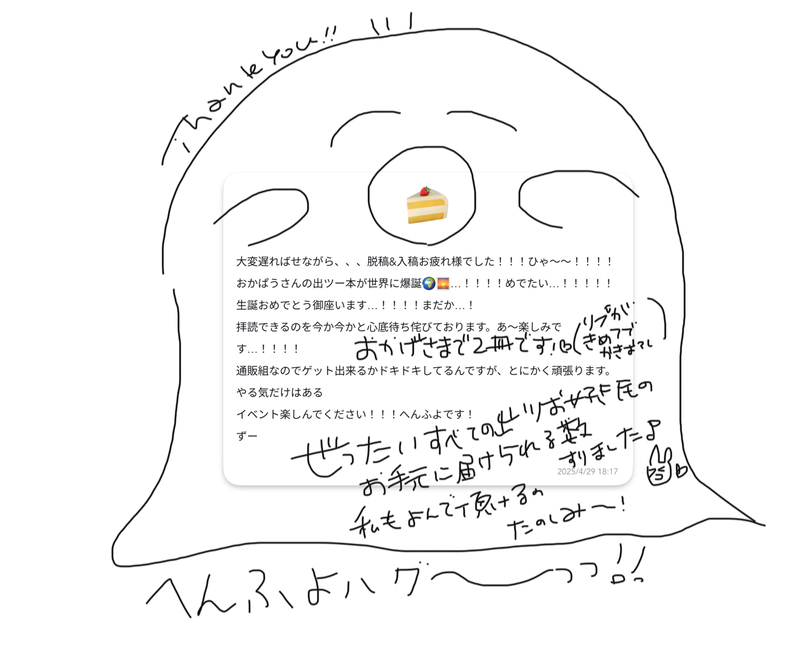 Thank you!!
大変遅ればせながら、、、脱稿&入稿お疲れ様でした！！！ひゃ〜〜！！！！
おかぱうさんの出ツー本が世界に爆誕🌍🌅…！！！！めでたい…！！！！！
生誕おめでとう御座います…！！！！まだか…！
拝読できるのを今か今かと心底待ち侘びております。あ〜楽しみで
す…！！！！
おかげさまで2冊です!!
(リプが
きめてで
かきました)
通販組なのでゲット出来るかドキドキしてるんですが、とにかく頑張ります。
やる気だけはある
イベント楽しんでください！！！へんふよです！
ずー
ぜったいすべての出ツお好き民の
お手元に届けられる数
すりました
2025/4/29 18:17
私もよんで頂けるの
たのしみ〜!
へんふよハグ〜〜っっ!!